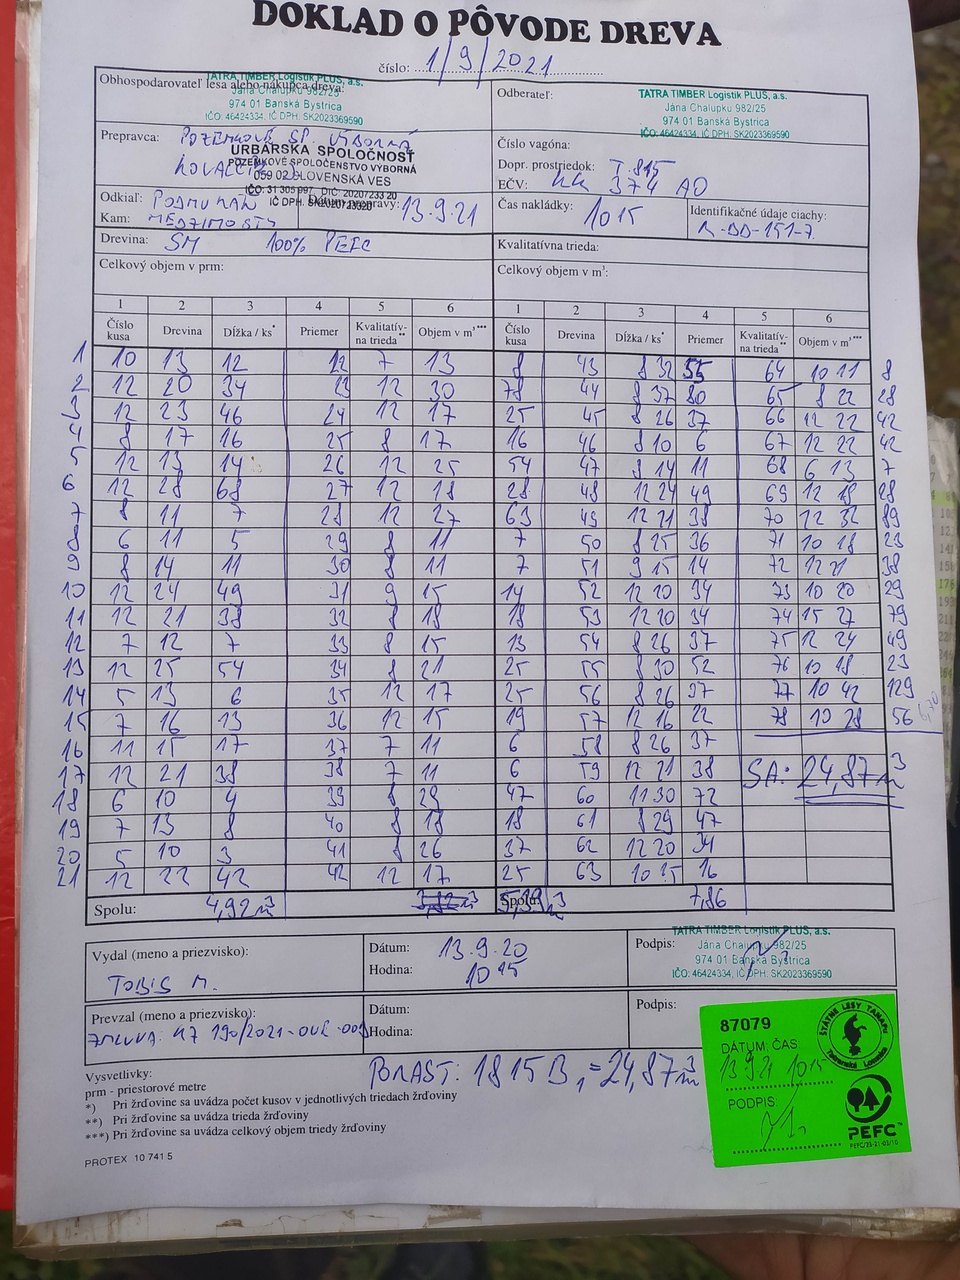 DOKLAD O PÔVODE DREVA
číslo: 1/9/2021
Obhospodarovateľ lesa alebo nákupca dreva:
TATRA TIMBER Logistik PLUS, a.s.
Jána Chalupku 982/25
974 01 Banská Bystrica
IČO: 46424334, IČ DPH. SK2023369590
Odberateľ:
TATRA TIMBER Logistik PLUS, a.s.
Jána Chalupku 982/25
974 01 Banská Bystrica
IČO: 46424334, IČ DPH. SK2023369590
Prepravca: POZEMKOVÉ SP. VÝBORNÁ
URBÁRSKA SPOLOČNOSŤ
POZEMKOVÉ SPOLOČENSTVO VÝBORNÁ
059 02 SLOVENSKÁ VES
Číslo vagóna:
Dopr. prostriedok: T-815
EČV: KK 374 AO
Odkiaľ:
13.9.21
Kam: MEDZIMOSTY
Čas nakládky: 10 15
Identifikačné údaje ciachy:
Drevina: SM 100% PEFC
Kvalitatívna trieda:
Celkový objem v prm:
Celkový objem v m³:
1 2 3 4 5 6 1 2 3 4 5 6
Číslo kusa Drevina Dĺžka / ks* Priemer Kvalitatív-na trieda** Objem v m³*** Číslo kusa Drevina Dĺžka / ks* Priemer Kvalitatív-na trieda** Objem v m³***
1 10 13 12 22 7 13 8 43 8 32 55 64 10 11 8
2 12 20 34 23 12 30 78 44 8 37 80 65 8 22 28
3 12 23 46 24 12 17 25 45 8 26 37 66 12 22 42
4 8 17 16 25 8 17 16 46 8 10 6 67 12 22 42
5 12 13 14 26 12 25 54 47 8 14 11 68 6 13 7
6 12 28 68 27 12 18 28 48 12 24 49 69 12 18 28
7 8 11 7 28 12 27 63 49 12 21 38 70 12 32 89
8 6 11 5 29 8 11 7 50 8 25 36 71 10 18 23
9 8 14 11 30 8 11 7 51 9 15 14 72 12 21 38
10 12 24 49 31 9 15 14 52 12 20 34 73 10 20 29
11 12 21 38 32 8 18 18 53 12 20 34 74 15 27 79
12 7 12 7 33 8 15 13 54 8 26 37 75 12 24 49
13 12 25 54 34 8 21 25 55 8 30 52 76 10 18 23
14 5 13 6 35 12 17 25 56 8 26 37 77 10 42 129
15 7 16 13 36 12 15 19 57 12 16 22 78 10 28 56
16 11 15 17 37 7 11 6 58 8 26 37
17 12 21 38 38 7 11 6 59 12 21 38 SA: 24,87 m³
18 6 10 4 39 8 29 47 60 11 30 72
19 7 13 8 40 8 18 18 61 8 29 47
20 5 10 3 41 8 26 37 62 12 20 34
21 12 22 42 42 12 17 25 63 10 15 16
Spolu: 4,92 m³ Spolu: 7,86
Vydal (meno a priezvisko):
TOBIS M.
Dátum: 13.9.20
Hodina: 10 15
Podpis:
TATRA TIMBER Logistik PLUS, a.s.
Jána Chalupku 982/25
974 01 Banská Bystrica
IČO: 46424334, IČ DPH. SK2023369590
Prevzal (meno a priezvisko):
Dátum:
Hodina:
Podpis:
PORAST: 1815 B, = 24,87 m³
Vysvetlivky:
prm - priestorové metre
*) Pri žrďovine sa uvádza počet kusov v jednotlivých triedach žrďoviny
**) Pri žrďovine sa uvádza trieda žrďoviny
***) Pri žrďovine sa uvádza celkový objem triedy žrďoviny
PROTEX 10 741 5
87079
DÁTUM, ČAS:
13 9 21 10 15
PODPIS:
ŠTÁTNE LESY TANAPu
Tatranská Lomnica
PEFC™